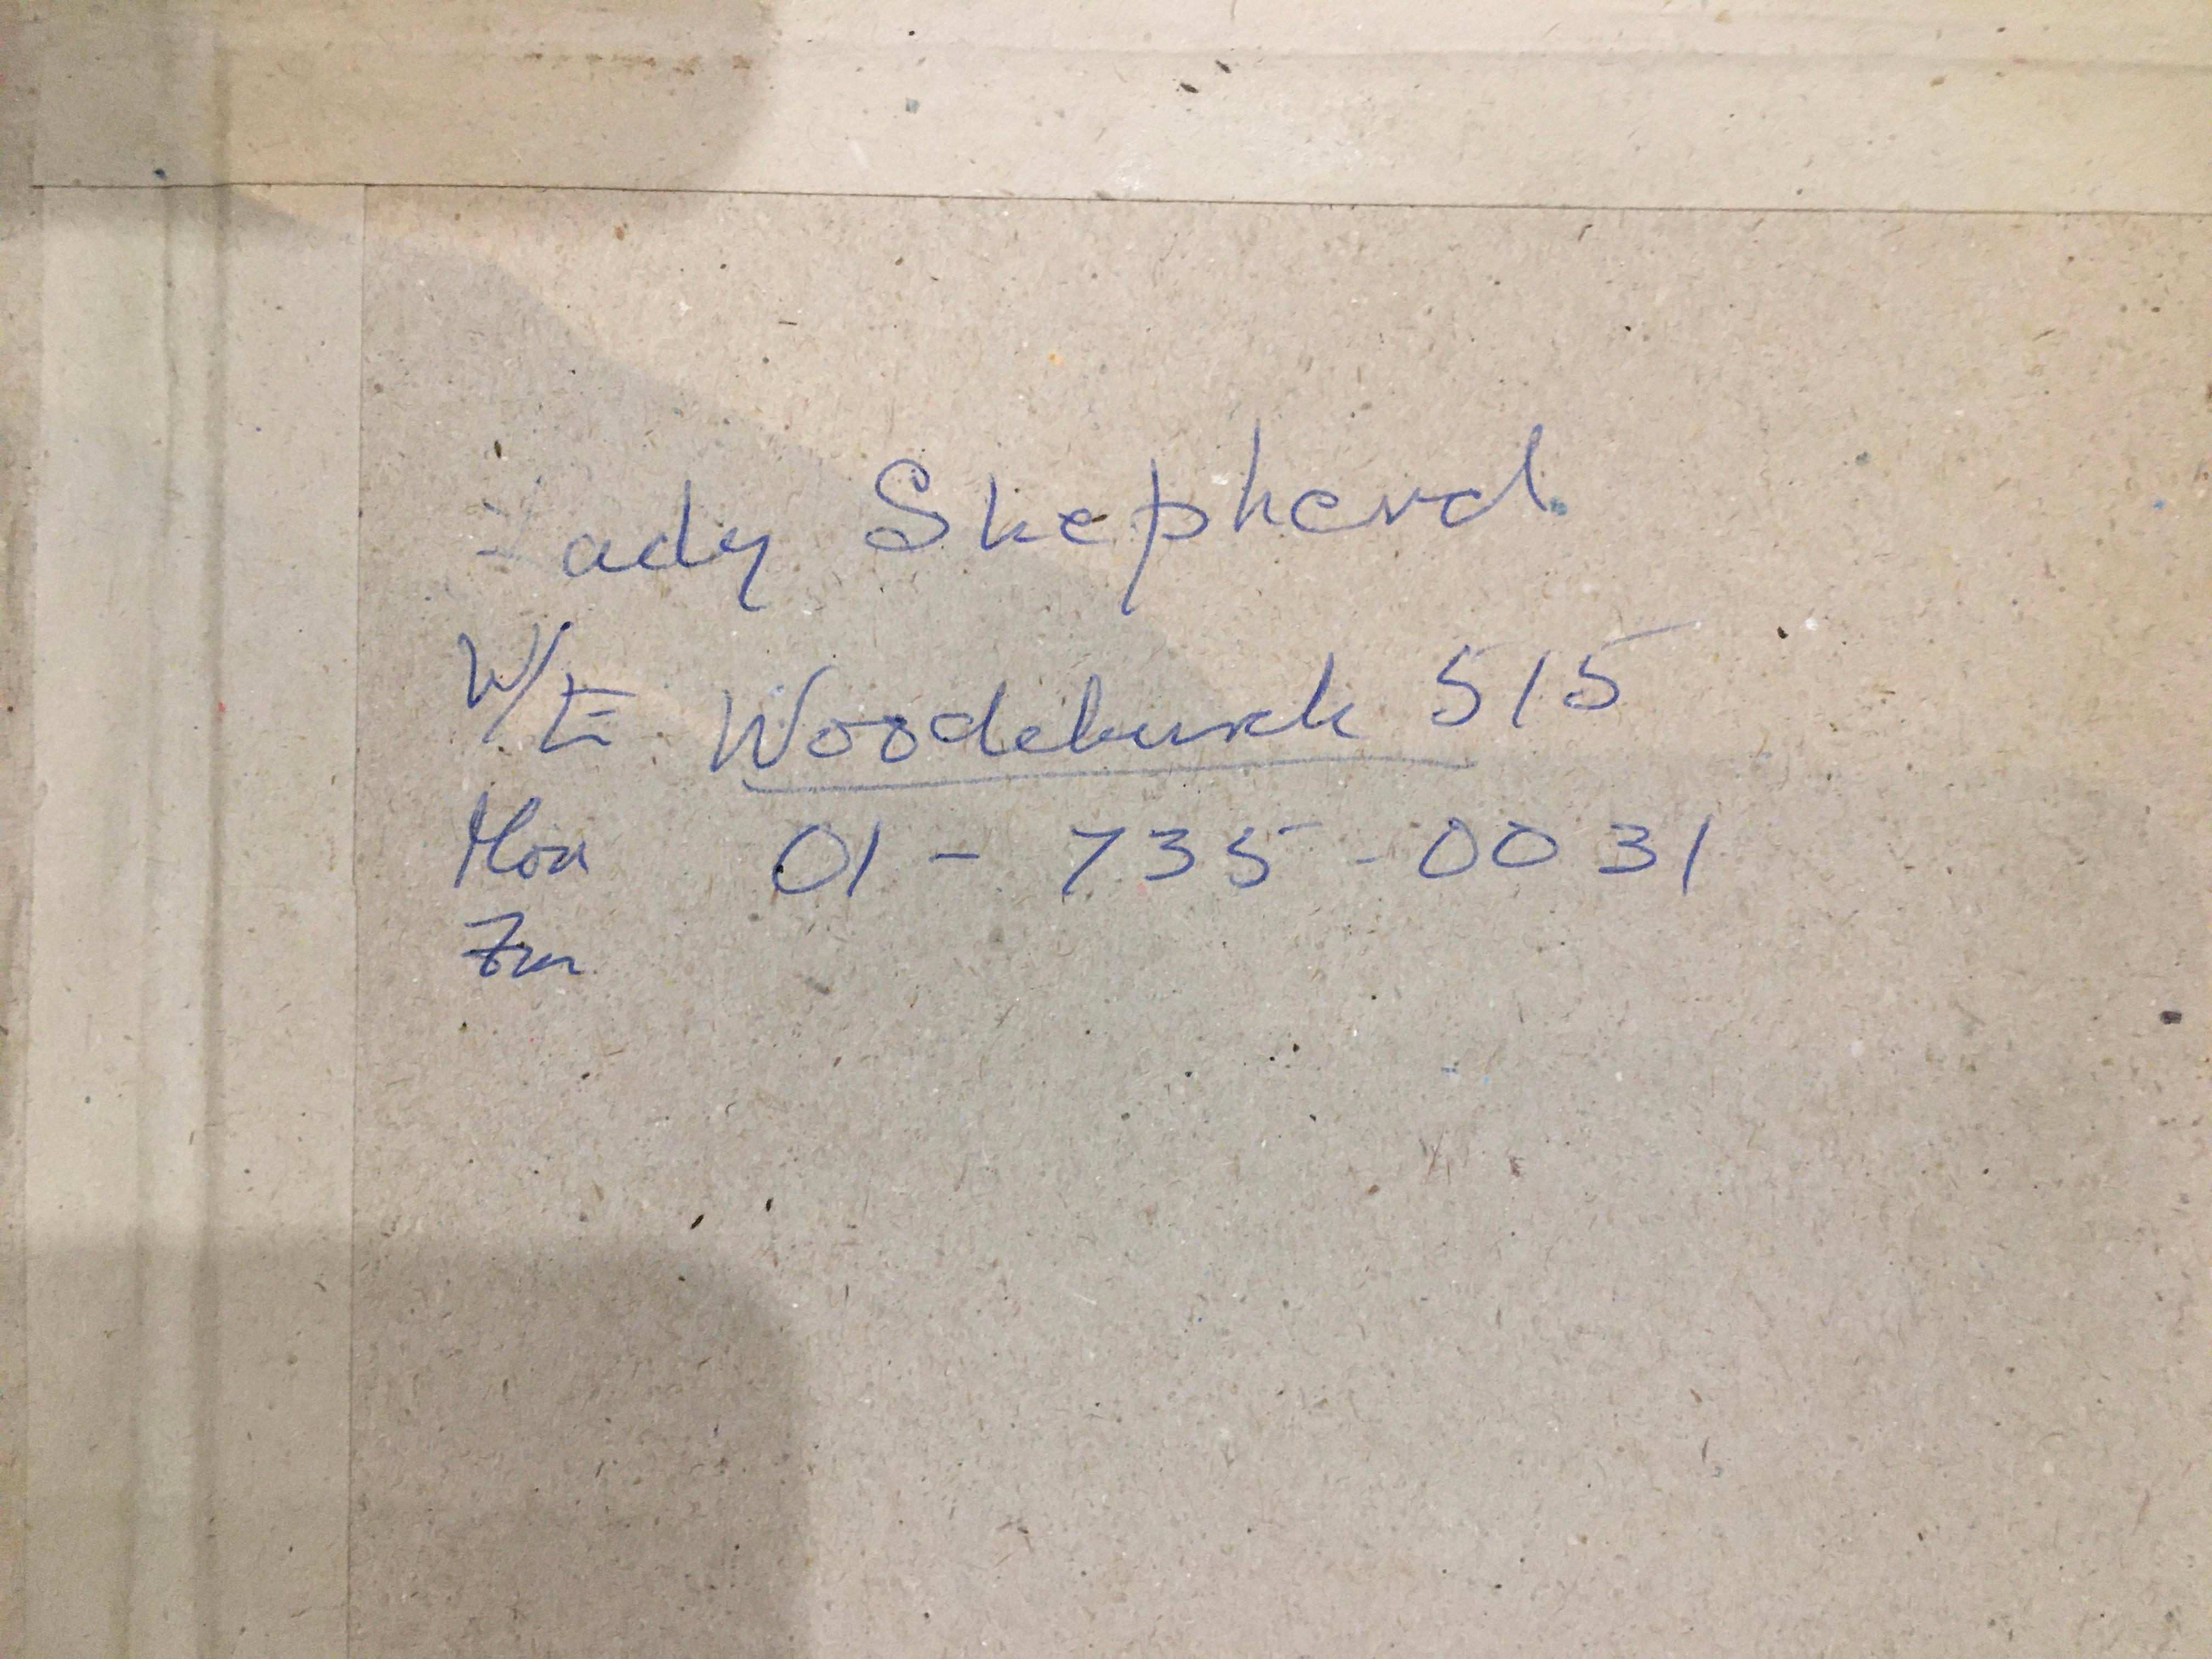 Lady Shepherd
W/E Woodchurch 515
Mon 01 - 735 - 0031